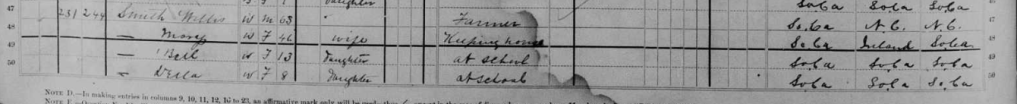 47 Daughter So.Ca So.Ca So.Ca 47
48 231 244 Smith W M 63 " Farmer So.Ca N.C. N.C. 48
49 — Mary W F 46 wife Keeping house So.Ca Irland So.Ca 49
— Bell W F 13 Daughter at school So.Ca So.Ca So.Ca
50 — Della W F 8 Daughter at school So.Ca So.Ca So.Ca 50
NOTE D.—In making entries in columns 9, 10, 11, 12, 16 to 23, an affirmative mark only will be